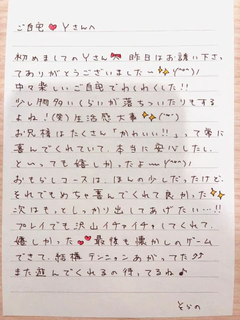 ご自宅❤Yさんへ
初めましてのYさん🎀昨日はお誘い下さっ
てありがとうございました〜✨(^^)/
中々楽しいご自宅でわくわくした!!
少し物多いくらいが落ちついたりもする
よね!(笑)生活感大事✨(^^)/
お兄様はたくさん「かわいい!!」って常に
喜んでくれていて、本当に安心したし、
といっても嬉しかったよ〜(^^)/
おもらしコースは、ほんの少しだったけど、
それでもめちゃ喜んでくれて良かった✨
次はもっとしっかり出してあげたい…!!
プレイでも沢山イチャイチャしてくれて、
嬉しかった❤❤最後も懐かしのゲーム
できて、結構テンションあがってた♪
また遊んでくれるの待ってるね♪